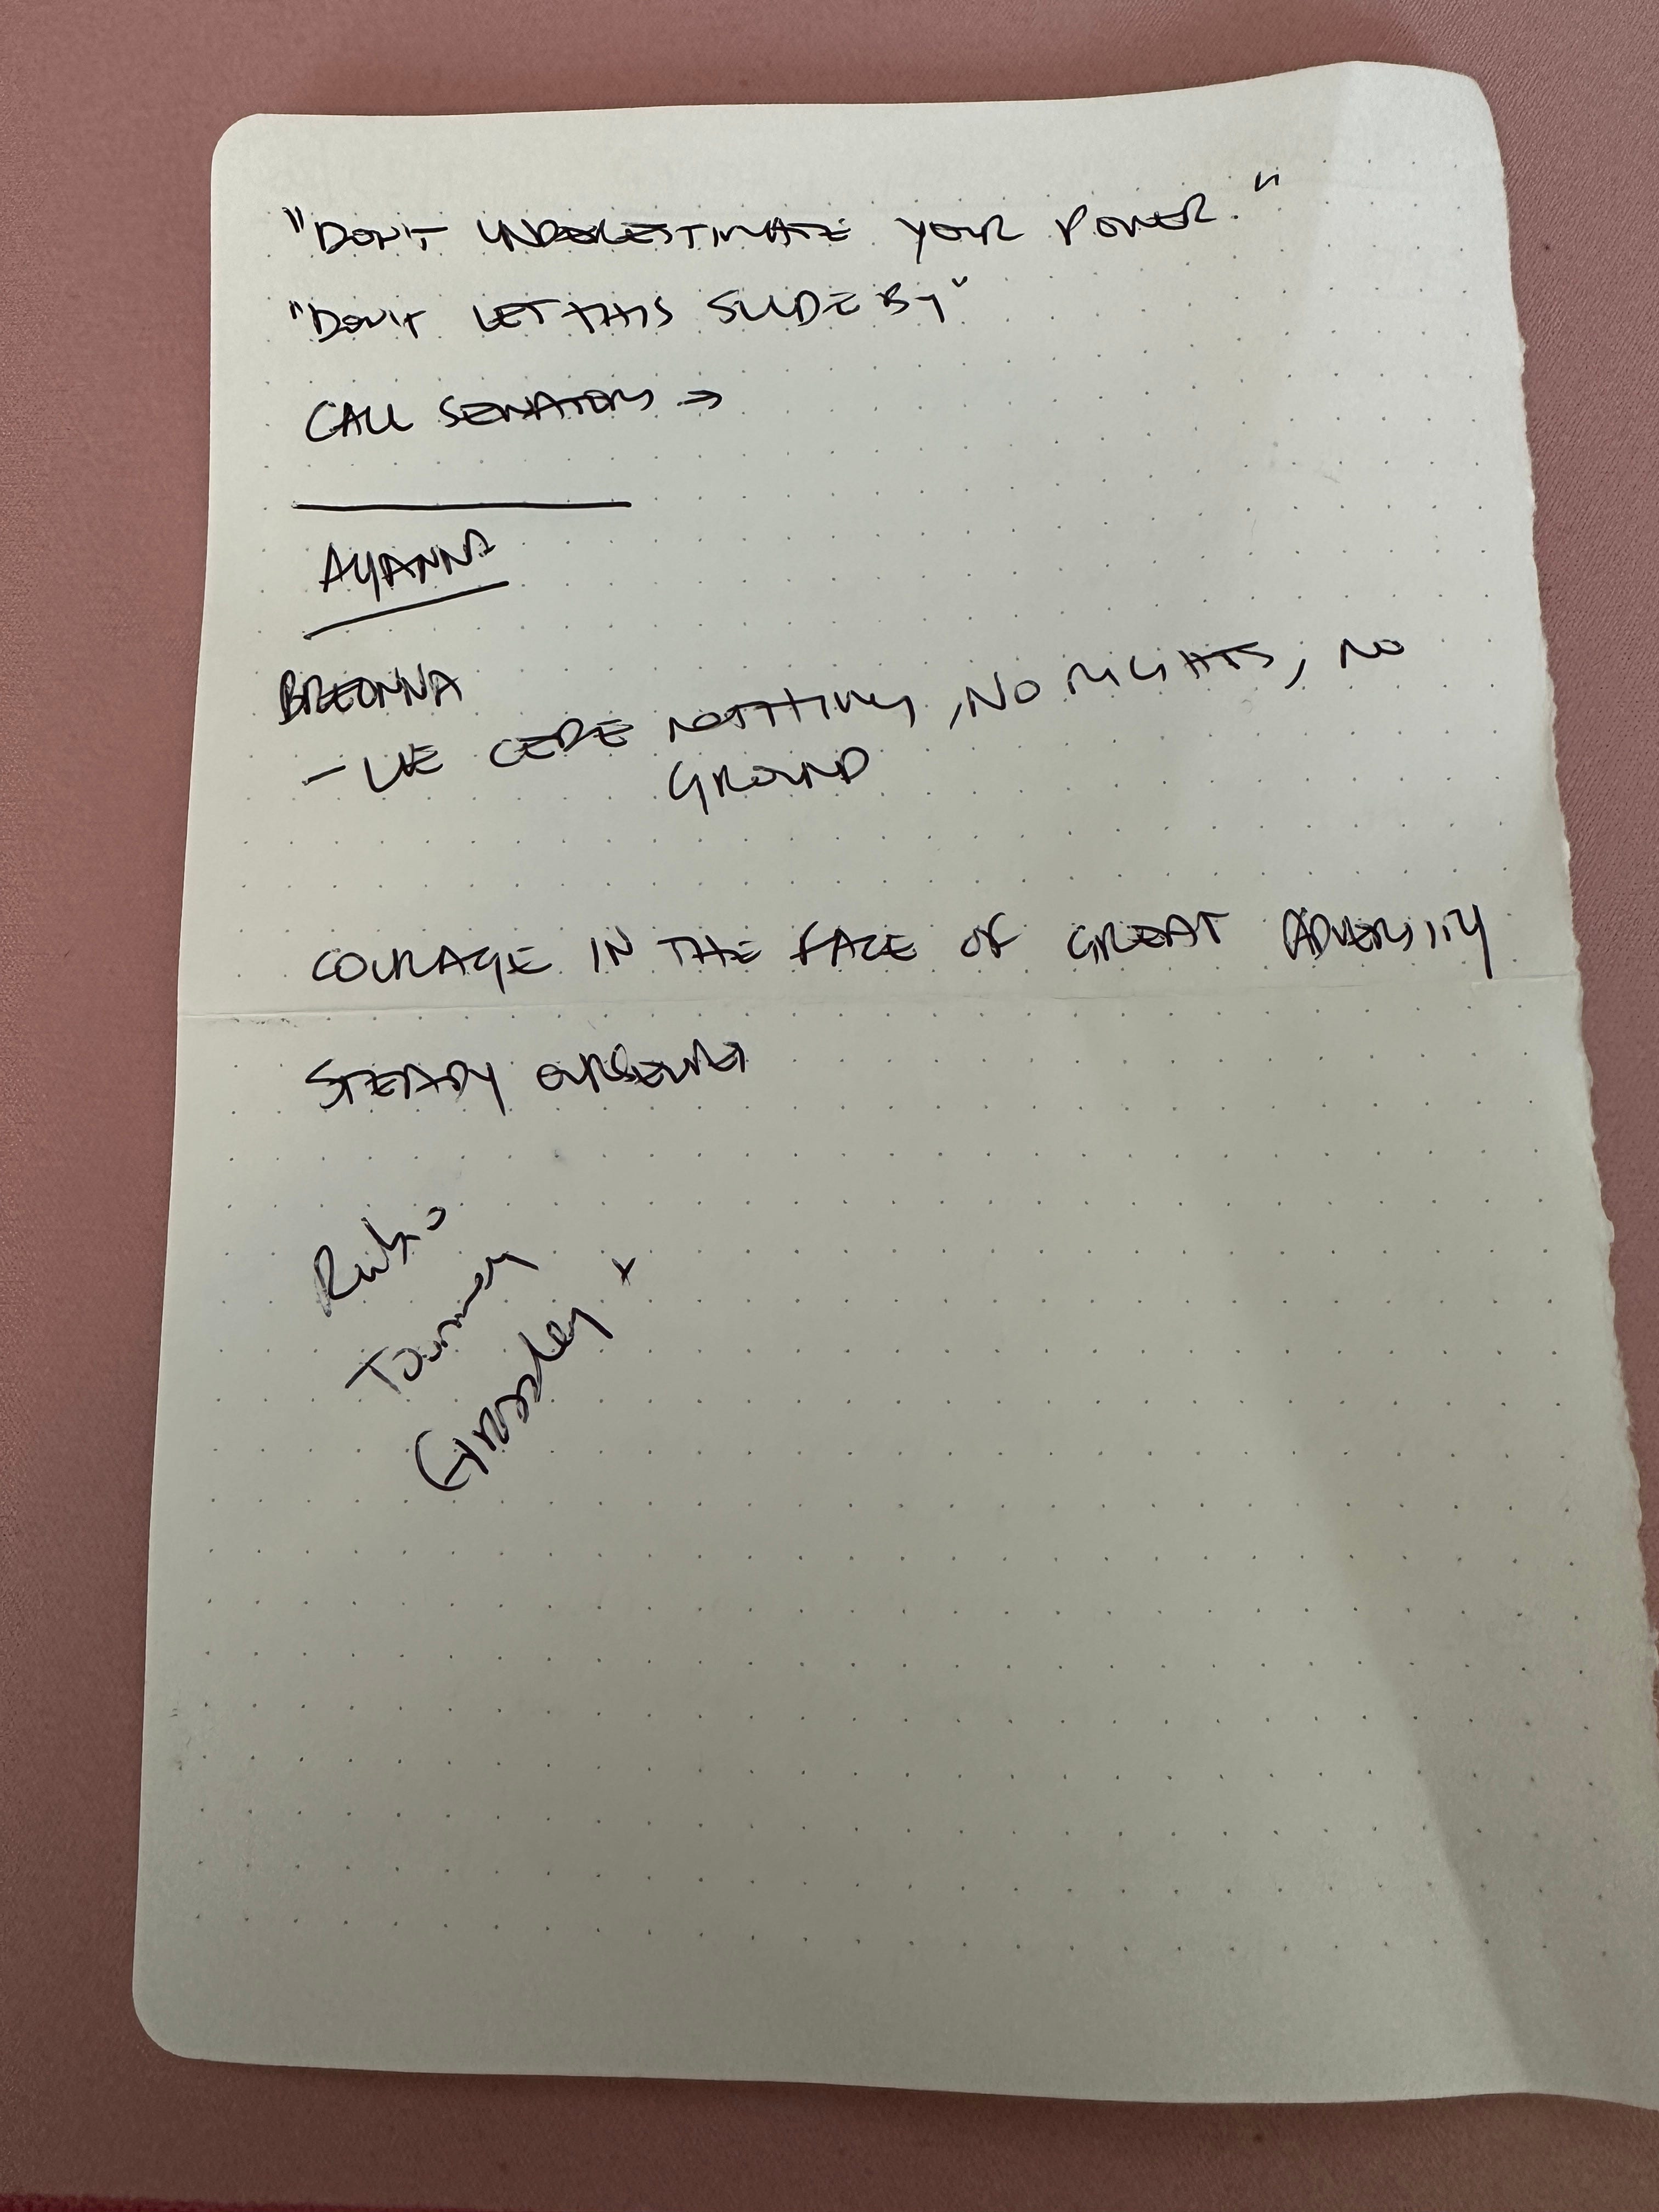 "DON'T UNDERESTIMATE YOUR POWER."
"DON'T LET THIS SLIDE BY"
CALL SENATORS →
AYANNA
BREONNA
- WE CEDE NOTHING, NO RIGHTS, NO
GROUND
COURAGE IN THE FACE OF GREAT ADVERSITY
STEADY OURSELVES
Rubio
Toomey
Grassley x